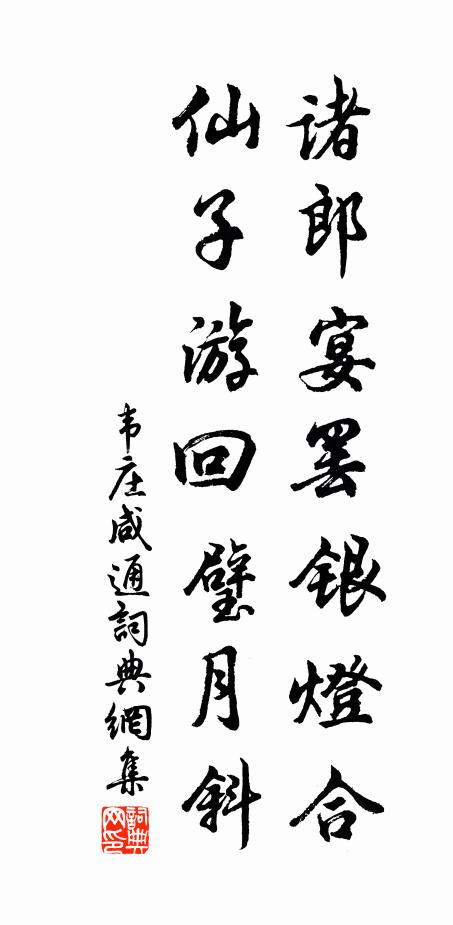 诸郎宴罢银燈合
仙子游回璧月斜
韦庄咸通詞典網集
詞典网印